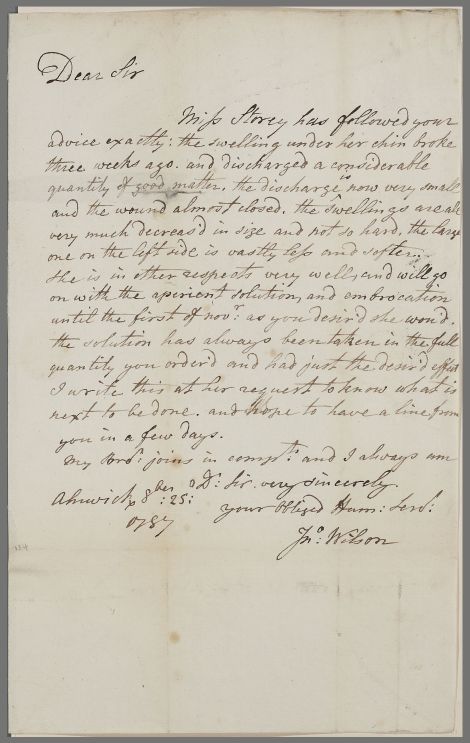 Dear Sir
Miss Storey has followed your
advice exactly: the swelling under her chin broke
three weeks ago. and discharged a considerable
quantity of good matter. the discharge is now very small
and the wound almost closed. the swellings are all
very much decreas'd in size and not so hard. the large
one on the left side is vastly less and softer.
she is in other respects very well, and will go
on with the aperient solution, and embrocation
until the first of novr: as you desir'd she wou'd.
the solution has always been taken in the full
quantity you order'd and had just the desir'd effect
I write this at her request to know what is
next to be done. and hope to have a line from
you in a few days.
My Bror: joins in compts: and I always am
Dr: Sir very sincerely.
Alnwick 8ber :25:
your obliged Hum: Servt:
1787
Jno: Wilson